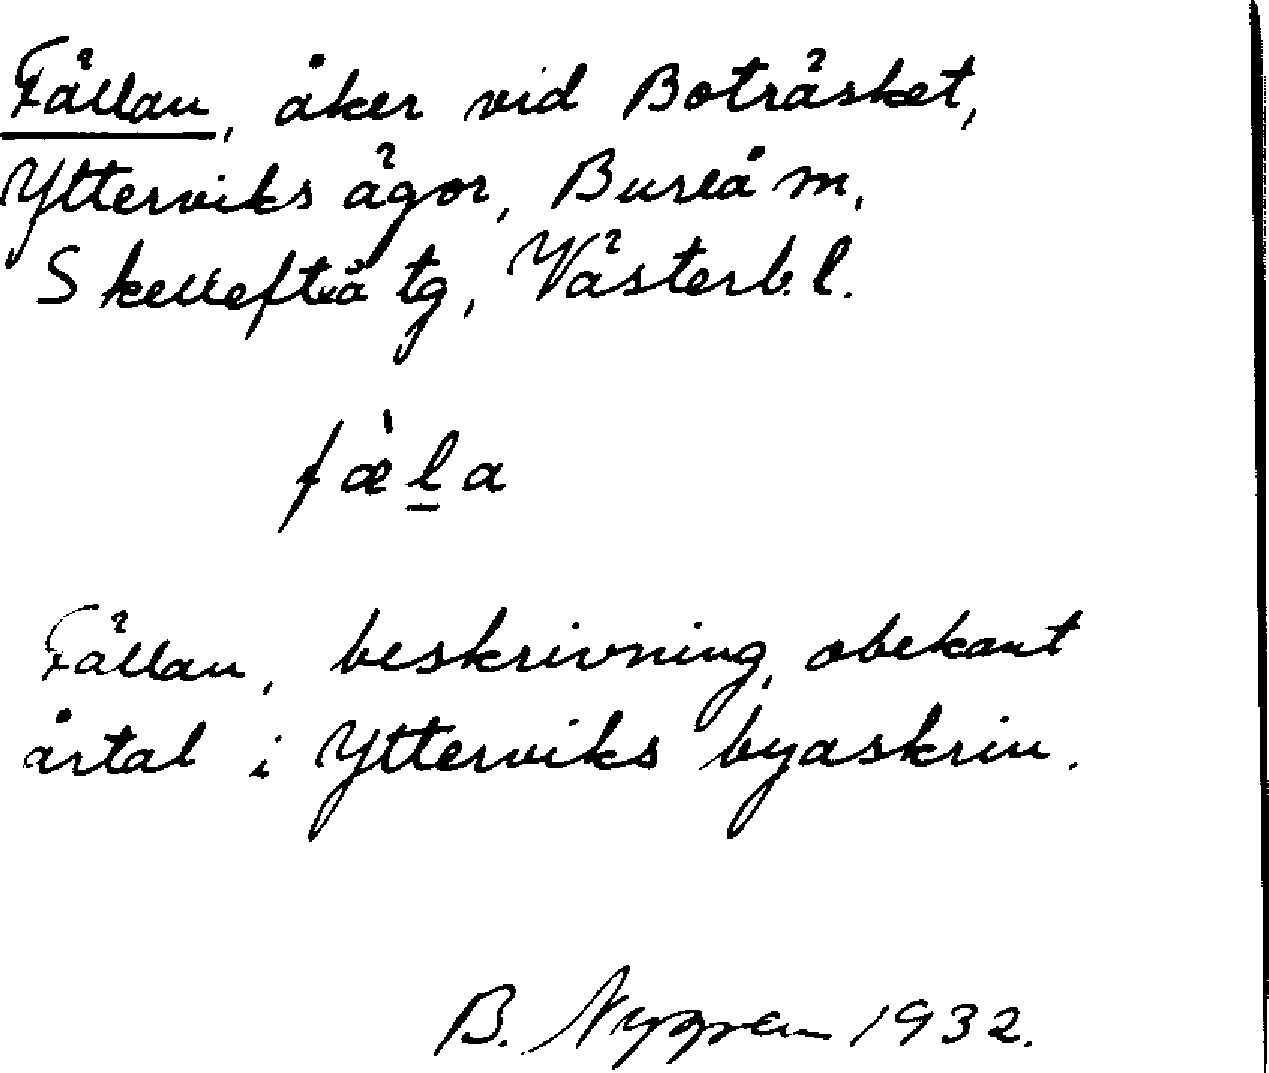 Fällan, åker vid Boträsket,
Ytterviks ägor, Bureå m.
Skellefteå tg, Västerb. l.
fæ̀l̲a
Fällan, beskrivning, obekant
årtal i Ytterviks byaskrin.
B. Nygren 1932.